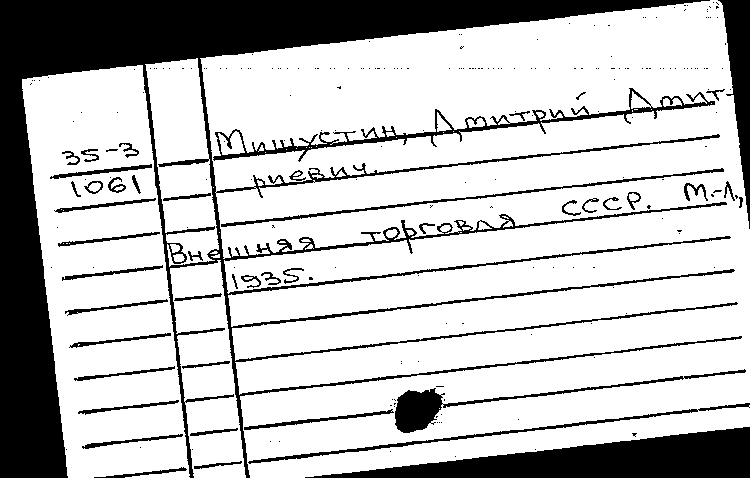 35-3
1061
Мишустин, Дмитрий Дмит-
риевич.
Внешняя торговля СССР. М.-Л.,
1935.